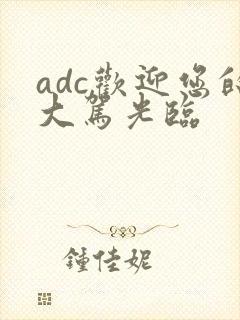 adc歡迎您的
大駕光臨
鍾佳妮